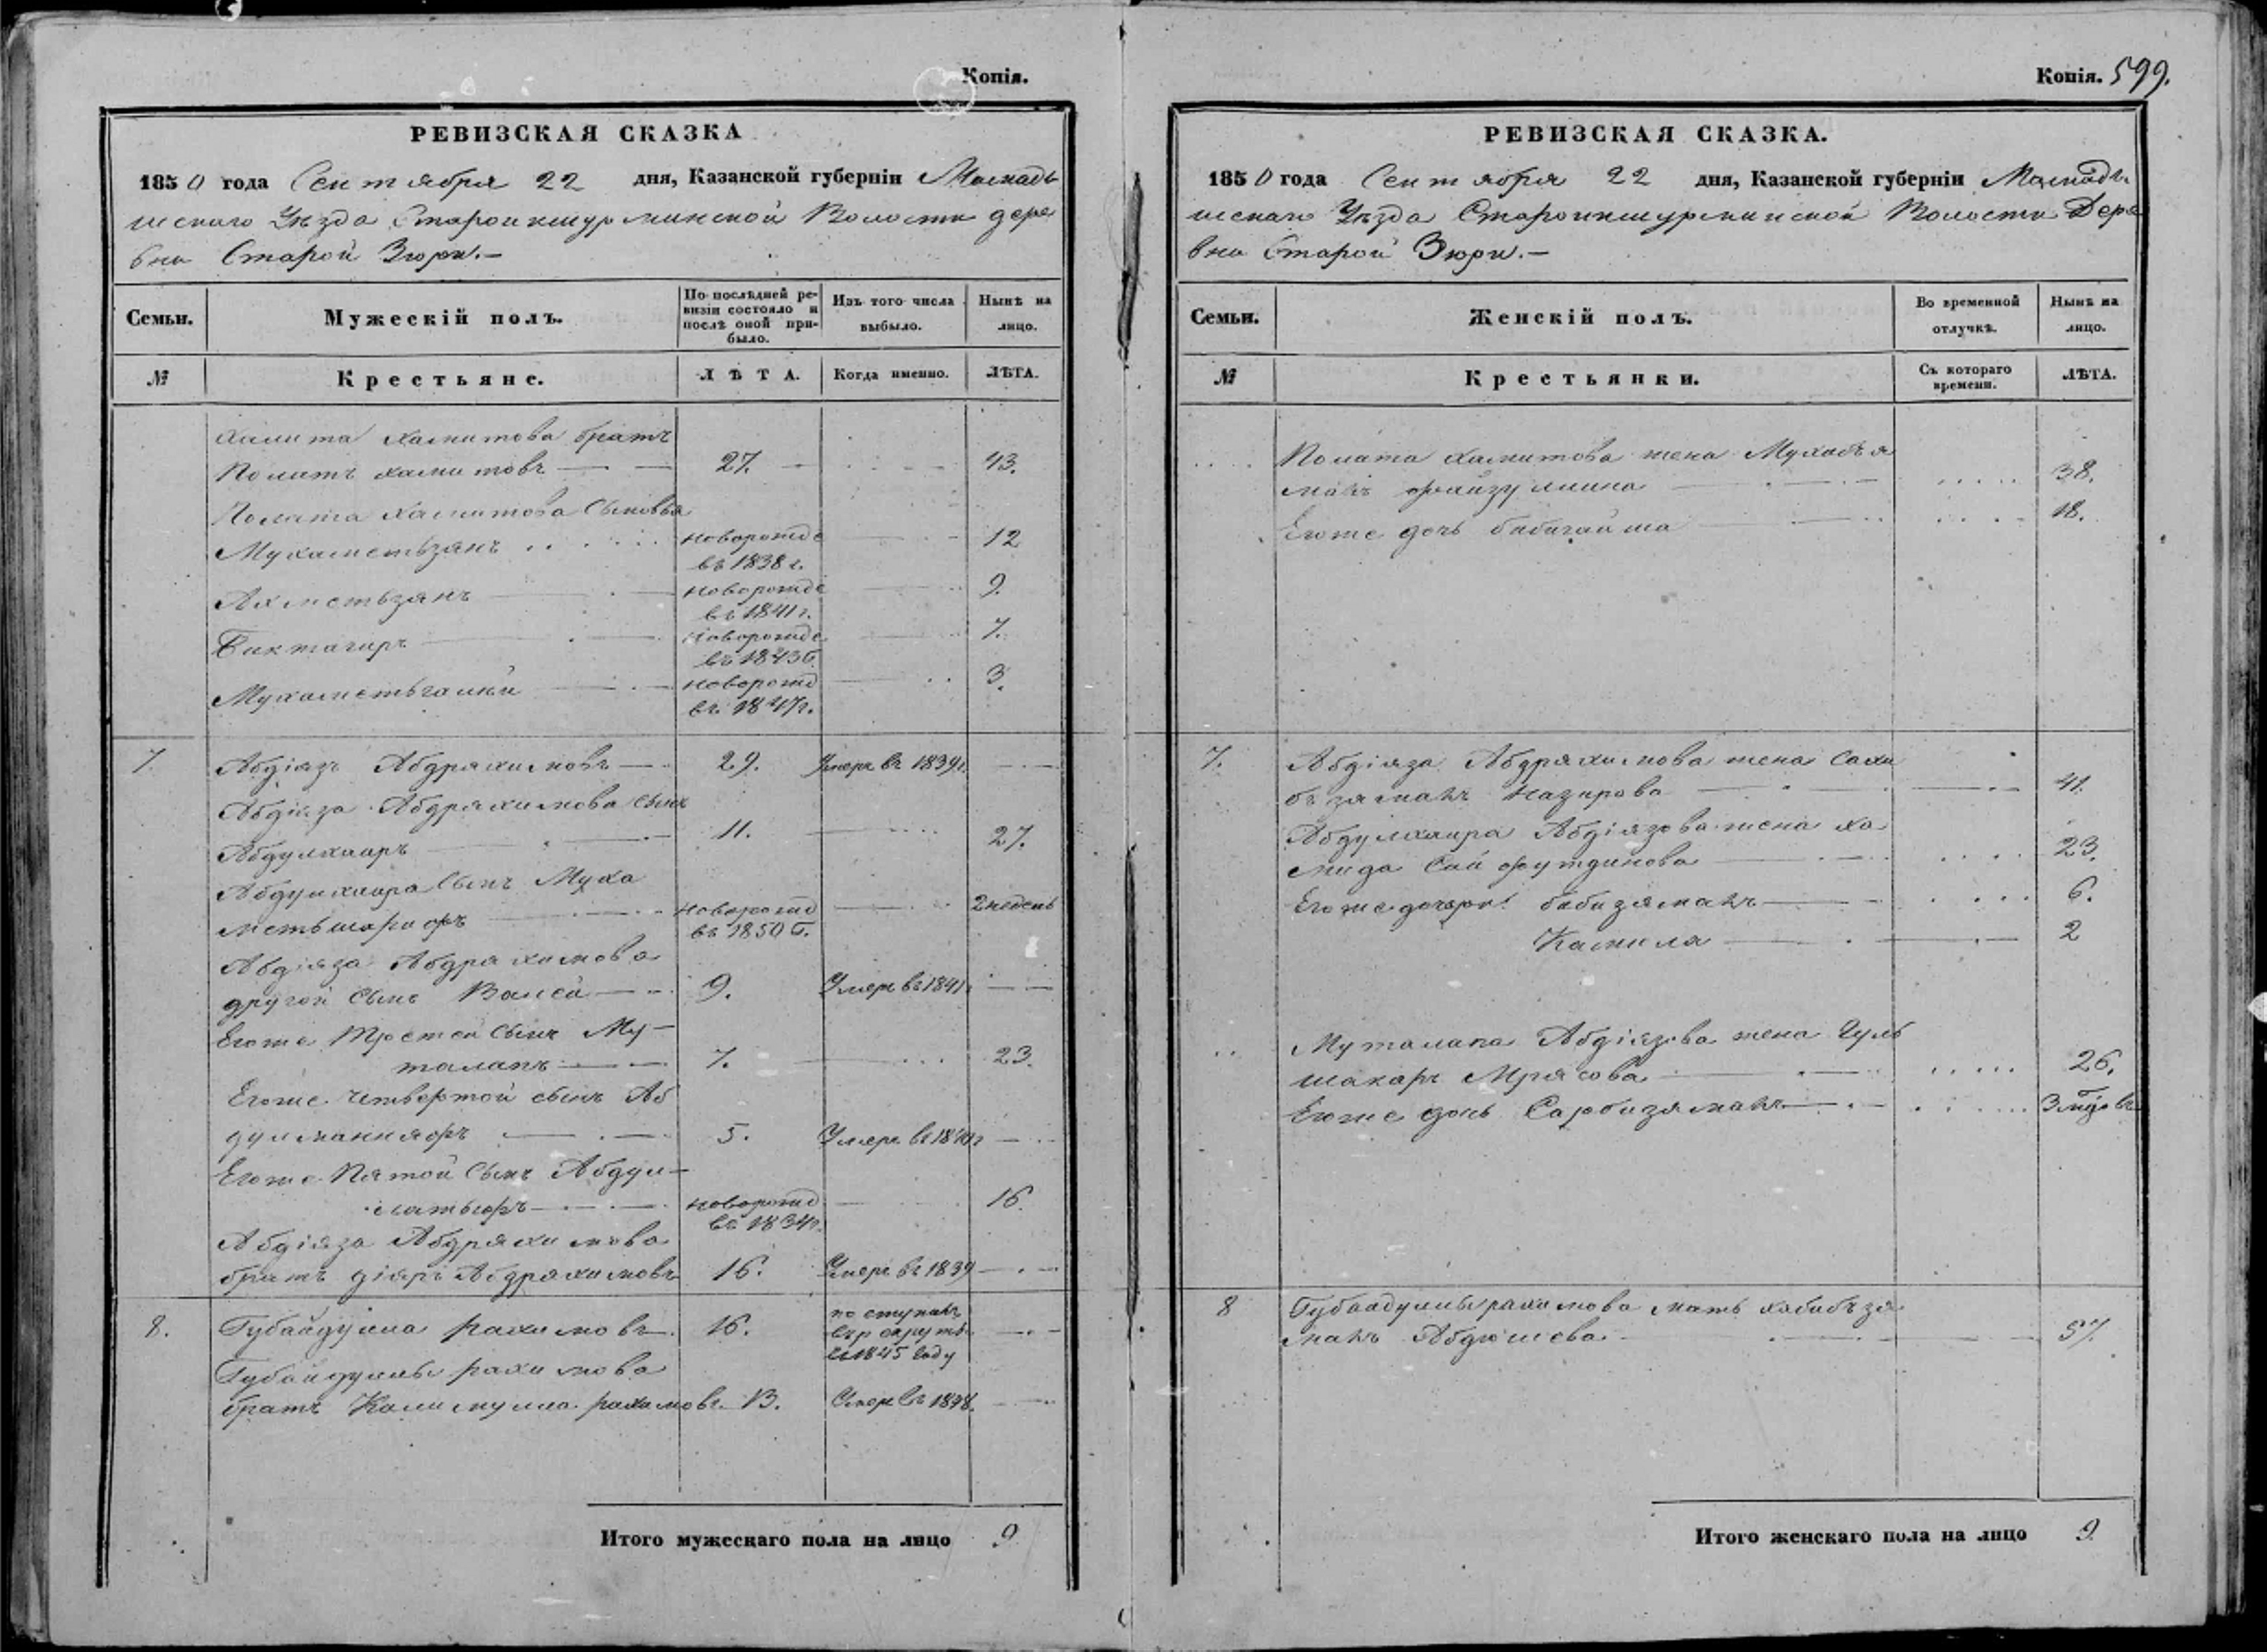 Копія.
РЕВИЗСКАЯ СКАЗКА
1850 года Сентября 22 дня, Казанской губерніи Мамады
шскаго Уѣзда Староикшурминской Волости дере
вни Старой Зюри.—
Семьи.
Мужескій полъ.
По послѣдней ре-
визіи состояло и
послѣ оной при-
было.
Изъ того числа
выбыло.
Нынѣ на
лицо.
№
Крестьяне.
ЛѢТА.
Когда именно.
ЛѢТА.
Халита Хамитова братъ
Полатъ Хамитовъ — — 27. 43.
Полата Хамитова Сыновья
Мухаметьзянъ новорожде 12
въ 1838 г.
Ахметьзянъ новорожде 9.
въ 1841 г.
Биктагиръ новорожде 7.
въ 1843 г.
Мухаметьгалей новорожд 3.
въ 1847 г.
7. Абдіязъ Абдряхимовъ — 29. Умеръ въ 1839 г.
Абдіяза Абдряхимова сынъ
Абдулхаиръ 11. 27.
Абдулхаира Сынъ Муха
метьшарифъ новорожд 2 недель
въ 1850 г.
Абдіяза Абдряхимова
другой сынъ Валей — 9. Умеръ въ 1841
Егоже Третей сынъ Му-
талапъ 7. 23.
Егоже четвертой сынъ Аб
дулманнафъ 5. Умеръ въ 1840 г
Егоже Пятой Сынъ Абдул-
латыфъ новорожд 16.
въ 1834 г.
Абдіяза Абдряхимова
братъ діяръ Абдряхимовъ 16. Умеръ въ 1839
8. Губайдулла Рахимовъ 16. поступилъ
въ рекруты
въ 1845 году
Губайдуллы Рахимова
братъ Калимулла Рахимовъ 13. Умеръ въ 1848.
Итого мужескаго пола на лицо 9
Копія. 599.
РЕВИЗСКАЯ СКАЗКА.
1850 года Сентября 22 дня, Казанской губерніи Мамады
шскаго Уѣзда Староикшурминской Волости Дере
вни Старой Зюри.—
Семьи.
Женскій полъ.
Во временной
отлучкѣ.
Нынѣ на
лицо.
№
Крестьянки.
Съ котораго
времени.
ЛѢТА.
Полата Хамитова жена Мухабъя
малъ Файзуллина 38.
Егоже дочь бибигайша 18.
7. Абдіяза Абдряхимова жена Сахи
бъзямалъ Назирова 41.
Абдулхаира Абдіязова жена Ха
мида Сайфутдинова 23.
Егоже дочери бибизямалъ 6.
Камиля 2
Муталапа Абдіязова жена Гуль
шакаръ Мрясова 26.
Егоже дочь Сарбизямалъ 3 мѣс.
8 Губайдуллы Рахимова мать Хабибъзя
малъ Абдюшева 57.
Итого женскаго пола на лицо 9.